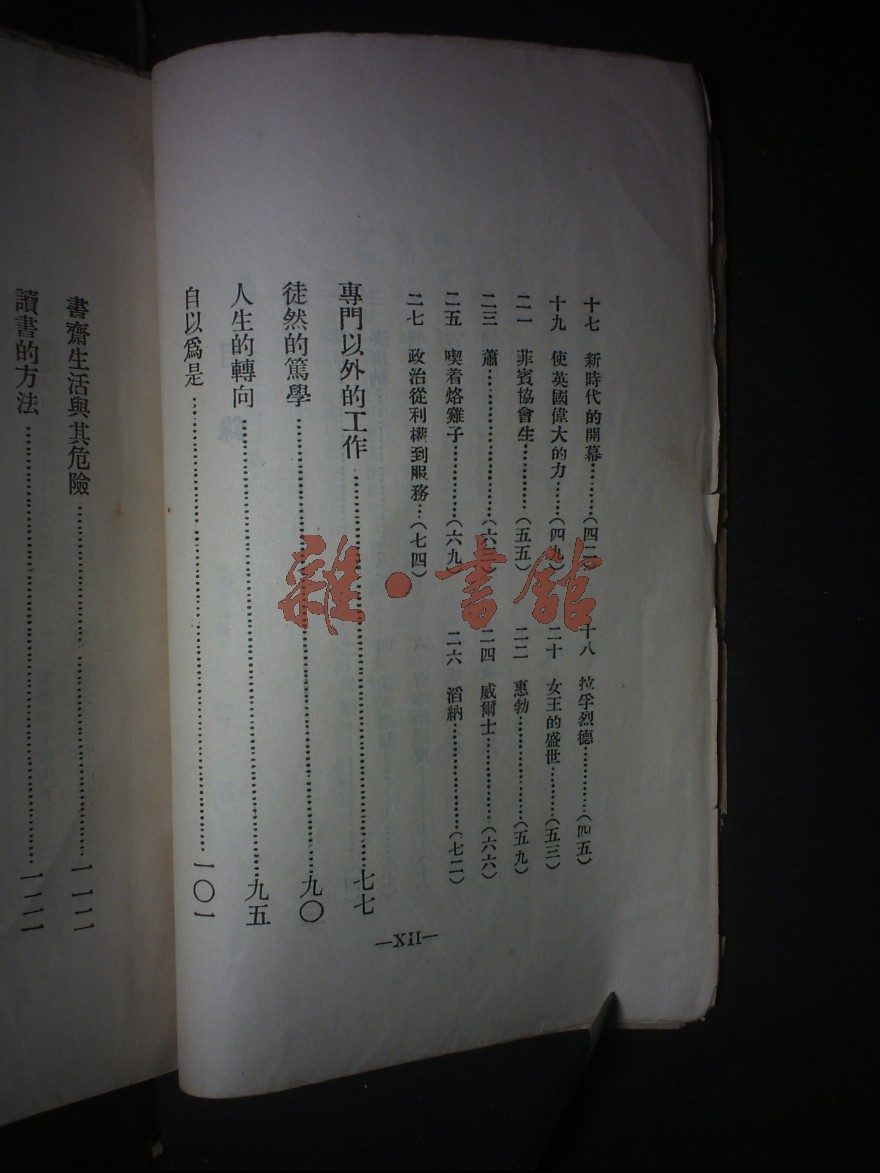 十七 新時代的開幕………(四二
十八 拉孚烈德…………(四五)
十九 使英國偉大的力……(四九)
二十 女王的盛世………(五三)
二一 菲賓協會生…………(五五)
二二 惠勃………………(五九)
二三 蕭……………………(六
二四 威爾士……………(六六)
二五 喫着烙雞子…………(六九)
二六 滔納………………(七二)
二七 政治從利權到服務…(七四)
專門以外的工作……………………七七
徒然的篤學……………………九〇
人生的轉向……………………九五
自以爲是……………………一〇一
—XII—
書齋生活與其危險……………………一一二
讀書的方法……………………一二一
雜·書館